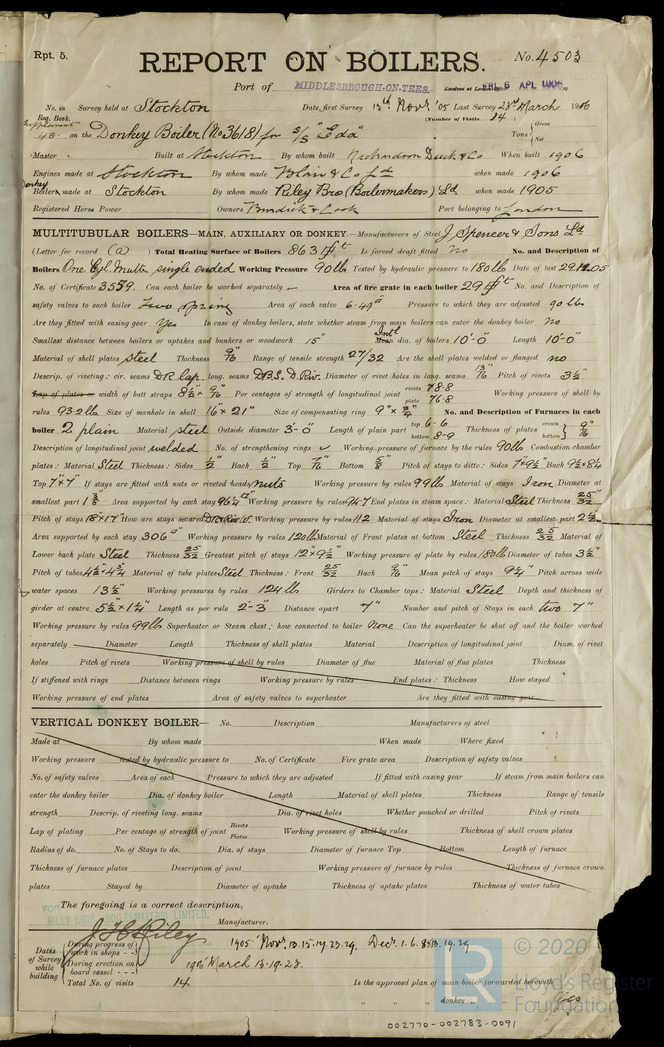 Rpt. 5.
REPORT ON BOILERS.
No. 4503
Port of MIDDLESBROUGH-ON-TEES.
No. in Survey held at Stockton Date, first Survey 13th Novr '05 Last Survey 23rd March 1906
Reg. Book. (Number of Visits 14)
48 on the Donkey Boiler (No 3618) for s/s "Eda" Tons { Gross Net
Master Built at Stockton By whom built Duck & Co When built 1906
Engines made at Stockton By whom made Blair & Co Ld when made 1906
Donkey Boilers made at Stockton By whom made Riley Bro (Boilermakers) Ld when made 1905
Registered Horse Power Owners & Cook Port belonging to London
MULTITUBULAR BOILERS—MAIN, AUXILIARY OR DONKEY.—Manufacturers of Steel J. Spencer & Sons Ld
(Letter for record (a)) Total Heating Surface of Boilers 863 Is forced draft fitted no No. and Description of
Boilers One Cyl. Multr single ended Working Pressure 90 lb Tested by hydraulic pressure to 180 lb Date of test 29.12.05
No. of Certificate 3559. Can each boiler be worked separately – Area of fire grate in each boiler 29 No. and Description of
safety valves to each boiler Two spring Area of each valve 6.49 Pressure to which they are adjusted 90 lb
Are they fitted with easing gear Yes In case of donkey boilers, state whether steam from main boilers can enter the donkey boiler no
Smallest distance between boilers or uptakes and bunkers or woodwork 15" dia. of boilers 10'-0" Length 10'-0"
Material of shell plates Steel Thickness 9/16" Range of tensile strength 27/32 Are the shell plates welded or flanged no
Descrip. of riveting: cir. seams DR Lap long. seams D.B.S. D. Riv. Diameter of rivet holes in long. seams 13/16" Pitch of rivets 3½"
Lap of plates or width of butt straps 8½" × 9/16" Per centages of strength of longitudinal joint rivets 78.8 plate 76.8 Working pressure of shell by
rules 93.2 lb Size of manhole in shell 16" × 21" Size of compensating ring No. and Description of Furnaces in each
boiler 2 plain Material steel Outside diameter 3'-0" Length of plain part top 6-6 bottom 8-9 Thickness of plates crown bottom 9/16"
Description of longitudinal joint welded No. of strengthening rings Working pressure of furnace by the rules 90 lb Combustion chamber
plates: Material Steel Thickness: Sides ½" Back ½" Top 9/16" Bottom 5/8" Pitch of stays to ditto: Sides 7" × 9½" Back 9½ × 8¼
Top 7" × 7" If stays are fitted with nuts or riveted heads nuts Working pressure by rules 99 lb Material of stays Iron Diameter at
smallest part 1 3/8" Area supported by each stay 96¼ Working pressure by rules 94.7 End plates in steam space: Material Steel Thickness 25/32"
Pitch of stays 18 × 17 How are stays secured Working pressure by rules 112 Material of stays Iron Diameter at smallest part 2½
Area supported by each stay 306 Working pressure by rules 120 lb Material of Front plates at bottom Steel Thickness 25/32" Material of
Lower back plate Steel Thickness 25/32 Greatest pitch of stays 12" × 9½" Working pressure of plate by rules 180 lb Diameter of tubes 3½"
Pitch of tubes 4½" × 4¾" Material of tube plates Steel Thickness: Front 25/32" Back 9/16" Mean pitch of stays 9¼" Pitch across wide
water spaces 13½" Working pressures by rules 124 lb Girders to Chamber tops: Material Steel Depth and thickness of
girder at centre 5½" × 1¼" Length as per rule 2'-3" Distance apart 7" Number and pitch of Stays in each two 7"
Working pressure by rules 99 lb Superheater or Steam chest; how connected to boiler None Can the superheater be shut off and the boiler worked
separately Diameter Length Thickness of shell plates Material Description of longitudinal joint Diam. of rivet
holes Pitch of rivets Working pressure of shell by rules Diameter of flue Material of flue plates Thickness
If stiffened with rings Distance between rings Working pressure by rules End plates: Thickness How stayed
Working pressure of end plates Area of safety valves to superheater Are they fitted with easing gear
VERTICAL DONKEY BOILER— No. Description Manufacturers of steel
Made at By whom made When made Where fixed
Working pressure tested by hydraulic pressure to No. of Certificate Fire grate area Description of safety valves
No. of safety valves Area of each Pressure to which they are adjusted If fitted with easing gear If steam from main boilers can
enter the donkey boiler Dia. of donkey boiler Length Material of shell plates Thickness Range of tensile
strength Descrip. of riveting long. seams Dia. of rivet holes Whether punched or drilled Pitch of rivets
Lap of plating Per centage of strength of joint Rivets Plates Working pressure of shell by rules Thickness of shell crown plates
Radius of do. No. of Stays to do. Dia. of stays Diameter of furnace Top Bottom Length of furnace
Thickness of furnace plates Description of joint Working pressure of furnace by rules Thickness of furnace crown
plates Stayed by Diameter of uptake Thickness of uptake plates Thickness of water tubes
The foregoing is a correct description,
Manufacturer.
J H Riley
Dates of Survey while building
During progress of work in shops - - 1905 Novr 13.15.17.23.29. Decr 1.6.8.13.19.29
During erection on board vessel - - - 1906 March 13.19.23.
Total No. of visits 14 Is the approved plan of main boiler forwarded herewith
" " " donkey " " " Yes
© 2020
Lloyd's Register
Foundation
002770-002783-0091